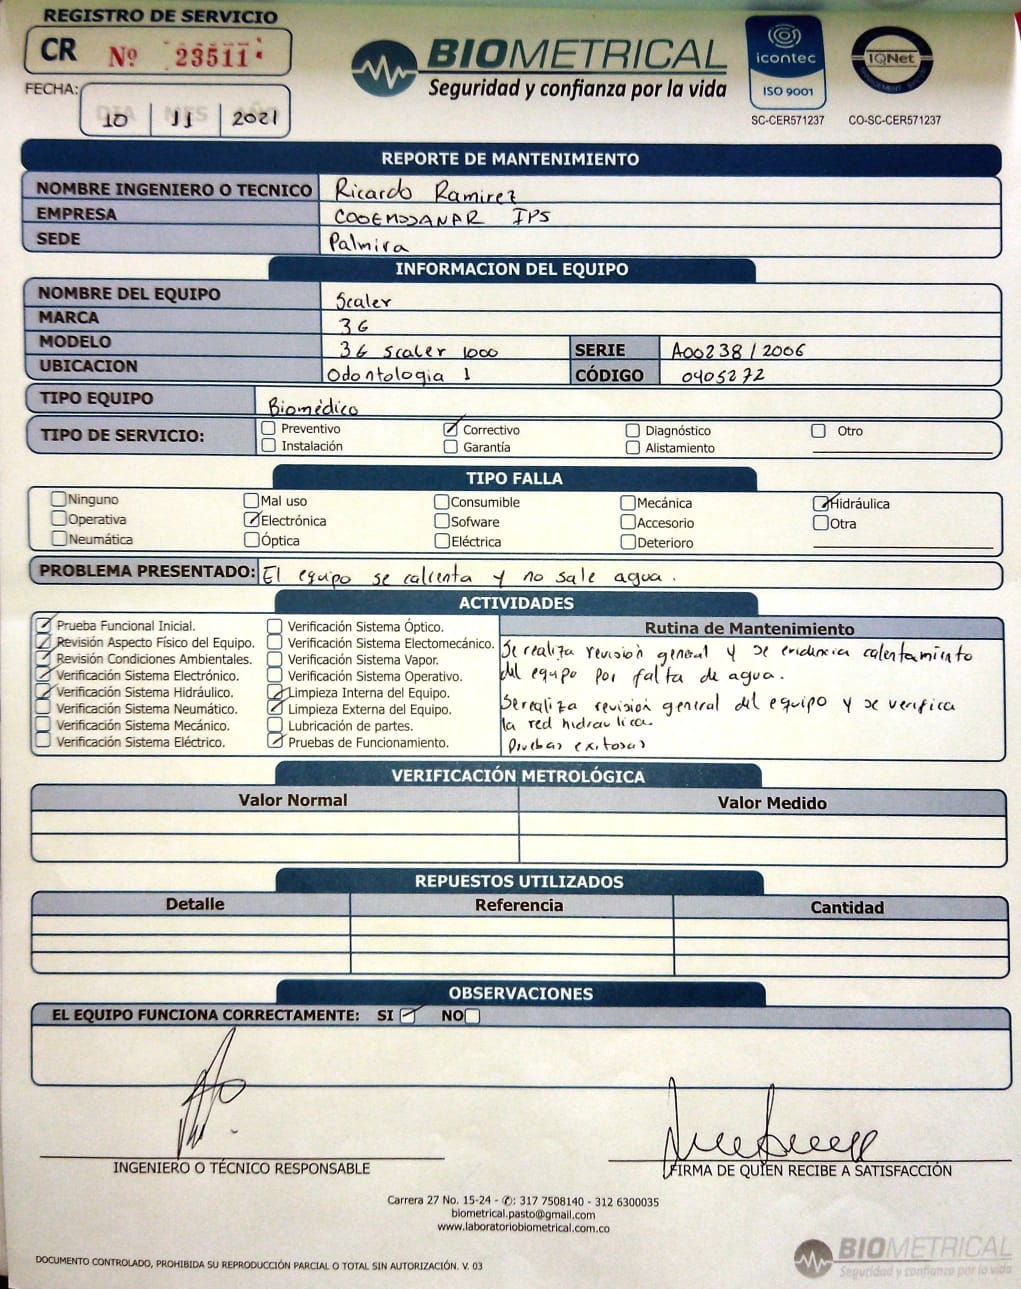 REGISTRO DE SERVICIO
CR Nº 23511
BIOMETRICAL
Seguridad y confianza por la vida
icontec
ISO 9001
SC-CER571237
IQNet
CO-SC-CER571237
FECHA: DIA MES AÑO
10 11 2021
REPORTE DE MANTENIMIENTO
NOMBRE INGENIERO O TECNICO Ricardo Ramirez
EMPRESA IPS
SEDE Palmira
INFORMACION DEL EQUIPO
NOMBRE DEL EQUIPO Scaler
MARCA 3G
MODELO 3G scaler 1000 SERIE A00238/2006
UBICACION Odontologia 1 CÓDIGO 0405272
TIPO EQUIPO Biomédico
TIPO DE SERVICIO: Preventivo Correctivo Diagnóstico Otro
Instalación Garantía Alistamiento
TIPO FALLA
Ninguno Mal uso Consumible Mecánica Hidráulica
Operativa Electrónica Sofware Accesorio Otra
Neumática Óptica Eléctrica Deterioro
PROBLEMA PRESENTADO: El equipo se calienta y no sale agua.
ACTIVIDADES
Prueba Funcional Inicial.
Revisión Aspecto Físico del Equipo.
Revisión Condiciones Ambientales.
Verificación Sistema Electrónico.
Verificación Sistema Hidráulico.
Verificación Sistema Neumático.
Verificación Sistema Mecánico.
Verificación Sistema Eléctrico.
Verificación Sistema Óptico.
Verificación Sistema Electomecánico.
Verificación Sistema Vapor.
Verificación Sistema Operativo.
Limpieza Interna del Equipo.
Limpieza Externa del Equipo.
Lubricación de partes.
Pruebas de Funcionamiento.
Rutina de Mantenimiento
Se realiza revisión general y se evidencia calentamiento
del equipo por falta de agua.
Se realiza revisión general del equipo y se verifica
la red hidraulica.
Pruebas exitosas
VERIFICACIÓN METROLÓGICA
Valor Normal Valor Medido
REPUESTOS UTILIZADOS
Detalle Referencia Cantidad
OBSERVACIONES
EL EQUIPO FUNCIONA CORRECTAMENTE: SI NO
INGENIERO O TÉCNICO RESPONSABLE
FIRMA DE QUIEN RECIBE A SATISFACCIÓN
Carrera 27 No. 15-24 - ✆: 317 7508140 - 312 6300035
biometrical.pasto@gmail.com
www.laboratoriobiometrical.com.co
DOCUMENTO CONTROLADO, PROHIBIDA SU REPRODUCCIÓN PARCIAL O TOTAL SIN AUTORIZACIÓN. V. 03
BIOMETRICAL
Seguridad y confianza por la vida